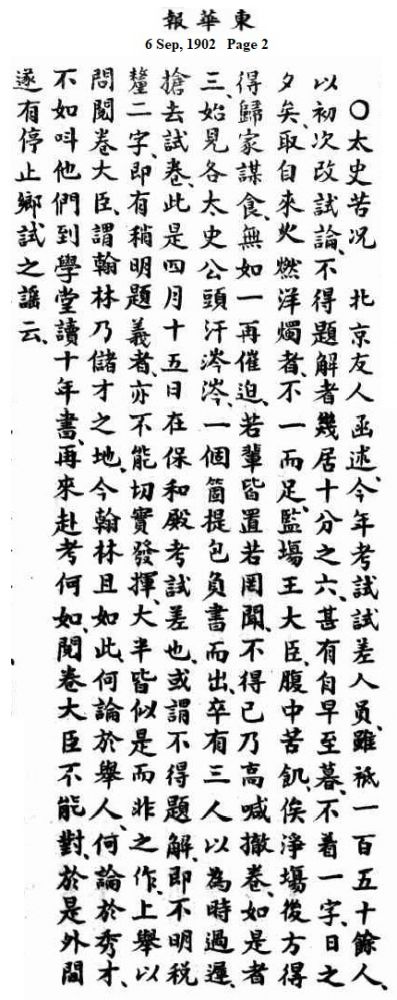 報華東
6 Sep, 1902 Page 2
〇太史苦况 北京友人函述、今年考試試差人員、雖祗一百五十餘人、
以初次改試論、不得題解者幾居十分之六、甚有自早至暮、不着一字、日之
夕矣、取自來火燃洋燭者、不一而足、監塲王大臣、腹中苦飢、俟淨塲後方得
得歸家謀食、無如一再催迫、若輩皆置若罔聞、不得已乃高喊撤卷、如是者
三、始見各太史公頭汗涔涔、一個箇提包負書而出、卒有三人以為時過遲、
搶去試卷、此是四月十五日在保和殿考試差也、或謂不得題解、即不明税
釐二字、即有稍明題義者、亦不能切實發揮、大半皆似是而非之作、上舉以
問閱卷大臣、謂翰林乃儲才之地、今翰林且如此、何論於舉人、何論於秀才、
不如呌他們到學堂讀十年書、再來赴考何如、閱卷大臣不能對、於是外間
遂有停止鄉試之謠云、